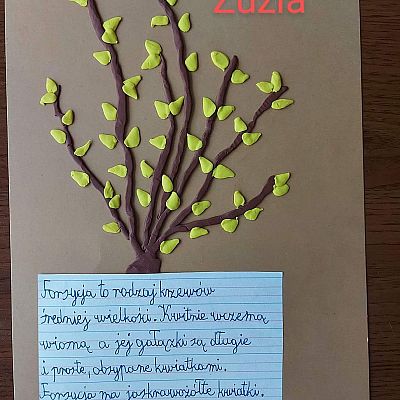 Zuzia
Forsycja to rodzaj krzewów
średniej wielkości. Kwitnie wczesną
wiosną a jej gałązki są długie
i proste, obsypane kwiatkami.
Forsycja ma jaskrawożółte kwiatki.